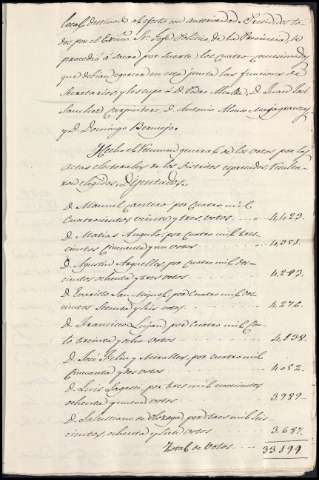 local destinado al efecto con anterioridad. Sentados to-
dos por el Exmo. Sr. Jefe Politico de la Provincia, se
procedió á sacar por suerte los cuatro comisionados
que debian egercer en esta junta las funciones de
Secretarios y les cupo á D. Pedro D. Juan
Sanchez D. Antonio Alonso
y D. Domingo Bermejo.
Hecho el resumen general de los votos por las
actas electorales de los distritos espresados, resulta-
ron elegidos Diputados.
D. Manuel Cantero por cuatro mil
cuatrocientos veinte y tres votos 4,423.
D. Matias Angulo por cuatro mil tres-
cientos cincuenta y un votos 4,351.
D. Agustin Arguelles por cuatro mil dos-
cientos ochenta y tres votos 4,283.
D. Evaristo San Miguel por cuatro mil dos-
cientos setenta y seis votos 4,276.
D. Francisco Lujan por cuatro mil cien-
to treinta y ocho votos 4,138.
D. José Feliu y Miralles por cuatro mil
cincuenta y dos votos 4,052.
D. Luis por tres mil novecientos
ochenta y nueve votos 3,989.
D. Salustiano de Olozaga por tres mil seis-
cientos ochenta y siete votos 3,687.
Total de votos 33,199